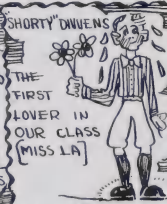 "SHORTY" DNVENS
THE
FIRST
LOVER IN
OUR CLASS
[MISS LA]